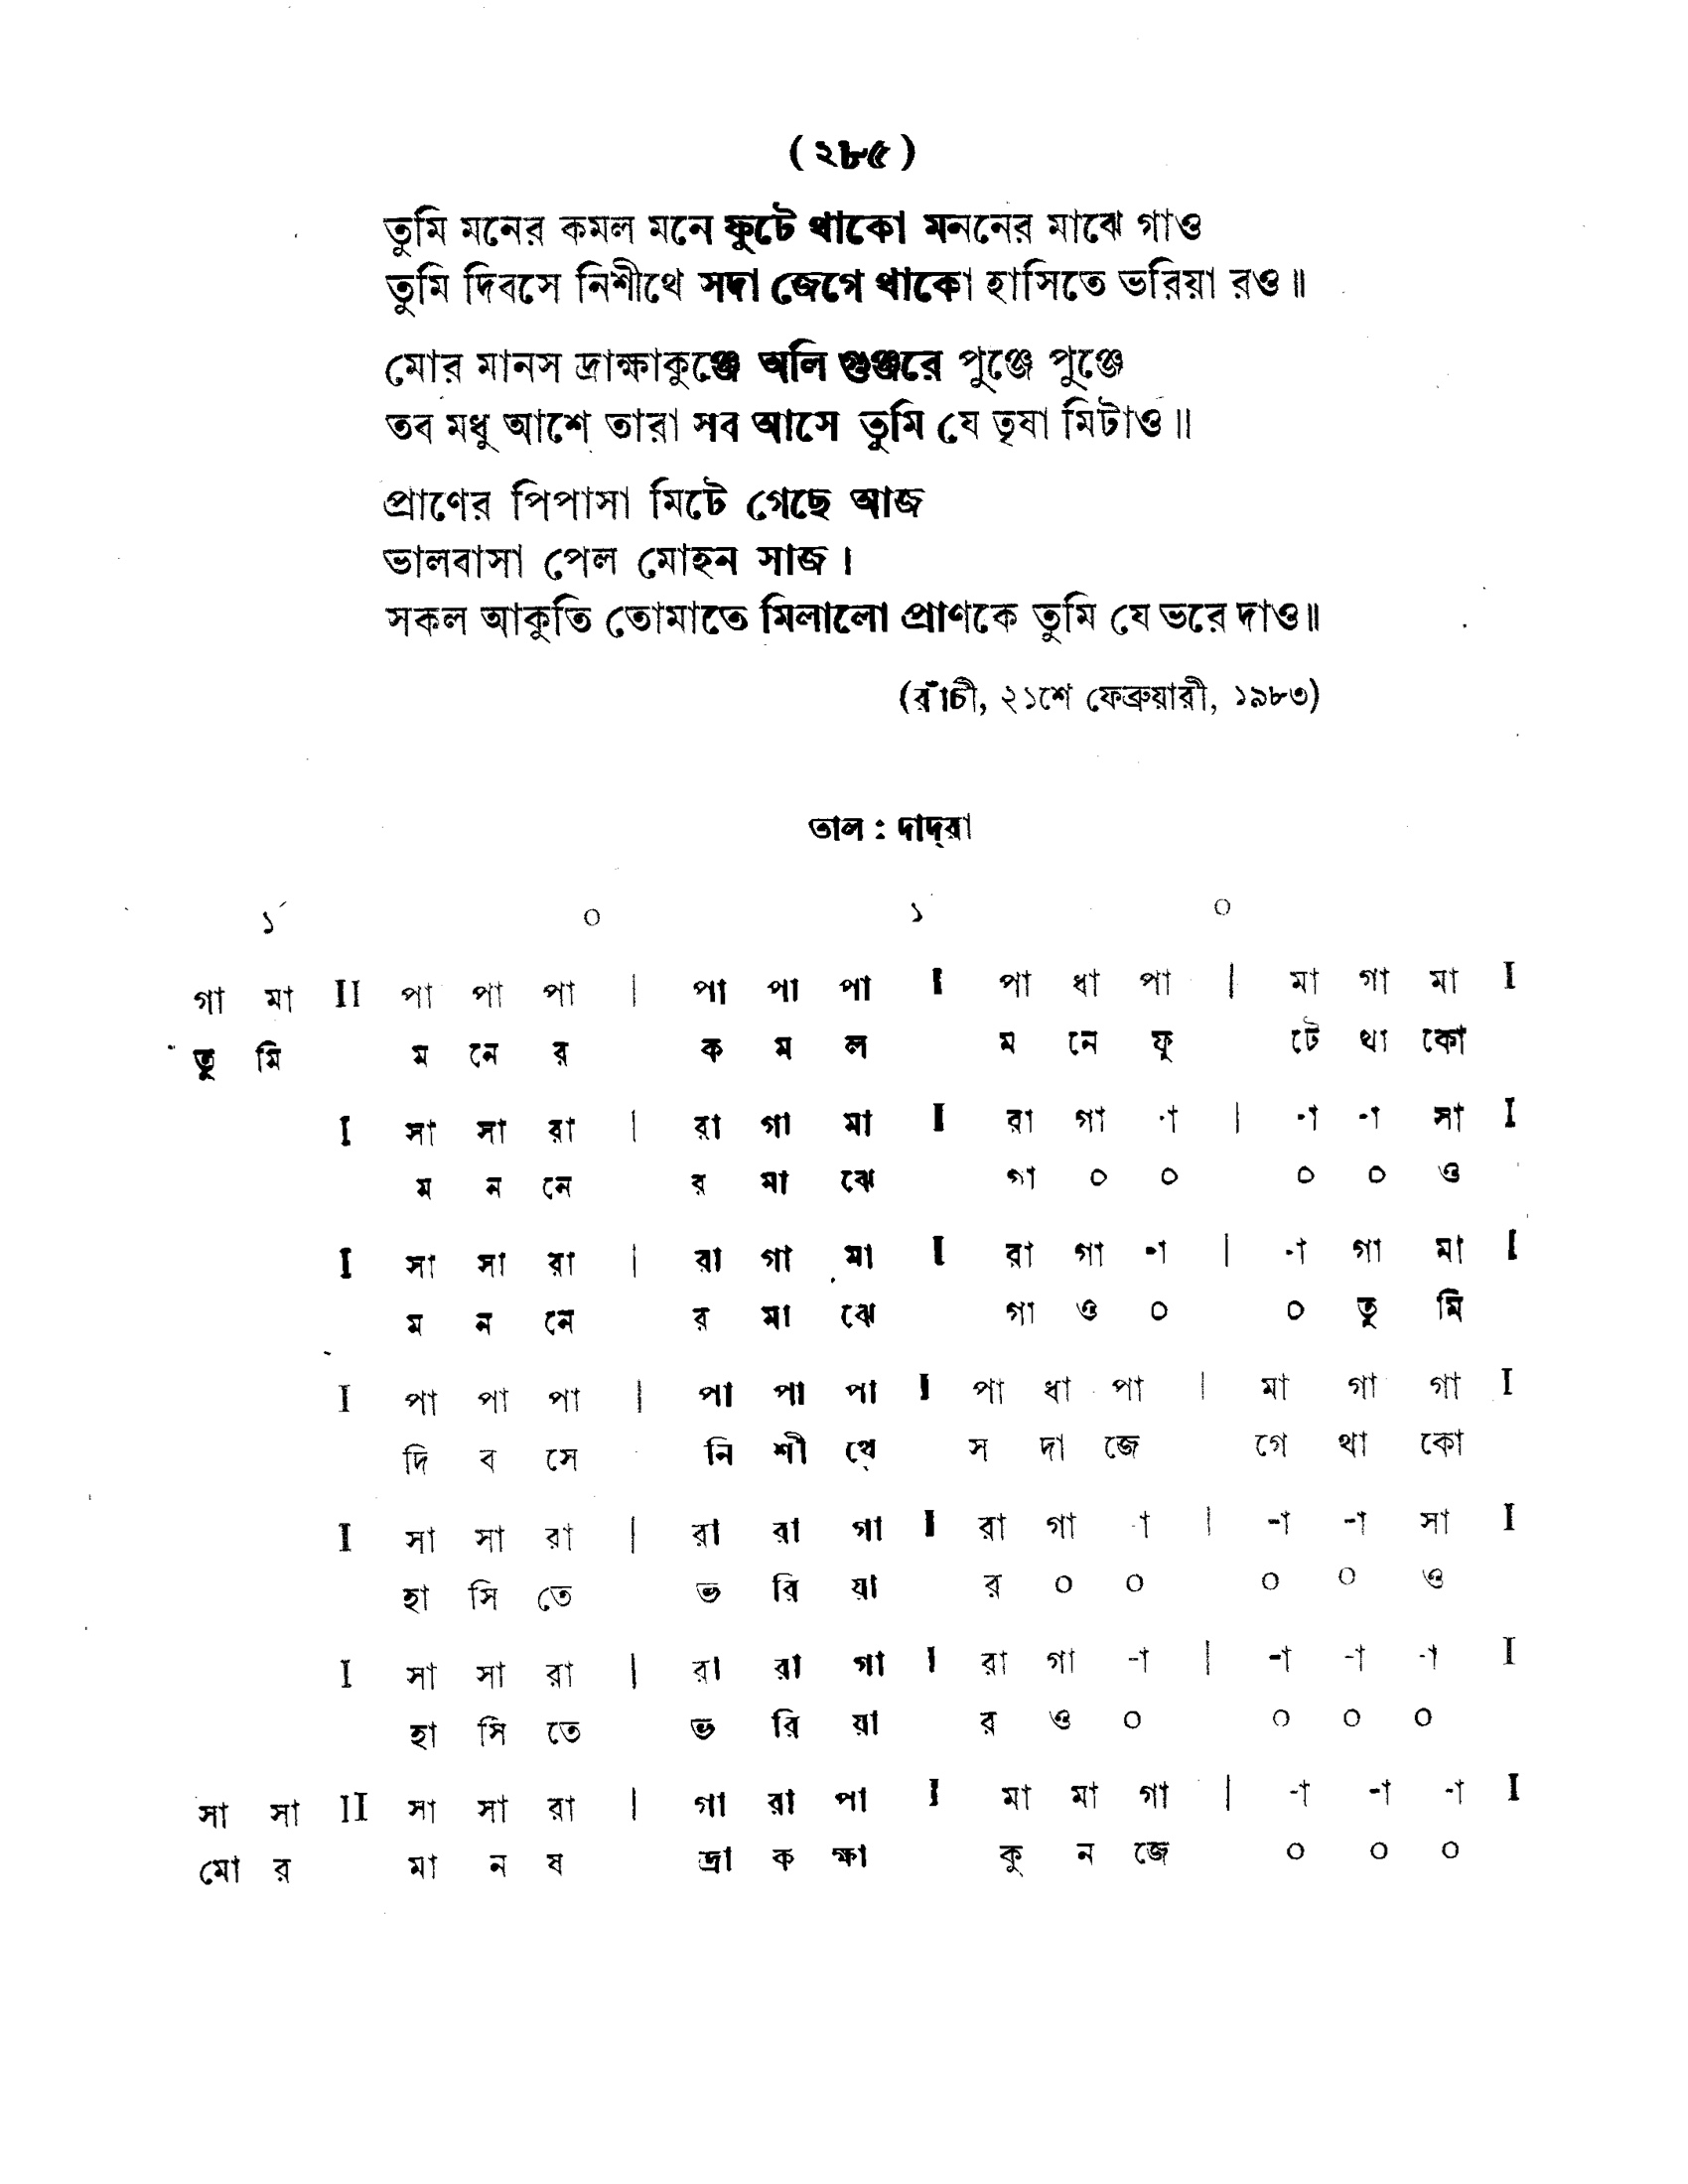 ( ২৮৫ )
তুমি মনের কমল মনে ফুটে থাকো মননের মাঝে গাও
তুমি দিবসে নিশীথে সদা জেগে থাকো হাসিতে ভরিয়া রও॥
মোর মানস দ্রাক্ষাকুঞ্জে অলি গুঞ্জরে পুঞ্জে পুঞ্জে
তব মধু আশে তারা সব আসে তুমি যে তৃষা মিটাও॥
প্রাণের পিপাসা মিটে গেছে আজ
ভালবাসা পেল মোহন সাজ।
সকল আকুতি তোমাতে মিলালো প্রাণকে তুমি যে ভরে দাও॥
(রাঁচী, ২১শে ফেব্রুয়ারী, ১৯৮৩)
তাল : দাদ্‌রা
১´ ০ ১ ০
গা মা II পা পা পা | পা পা পা I পা ধা পা | মা গা মা I
তু মি ম নে র ক ম ল ম নে ফু টে থা কো
I সা সা রা | রা গা মা I রা গা -া | -া -া সা I
ম ন নে র মা ঝে গা ০ ০ ০ ০ ও
I সা সা রা | রা গা মা I রা গা -া | -া গা মা I
ম ন নে র মা ঝে গা ও ০ ০ তু মি
I পা পা পা | পা পা পা I পা ধা পা | মা গা গা I
দি ব সে নি শী থে স দা জে গে থা কো
I সা সা রা | রা রা গা I রা গা -া | -া -া সা I
হা সি তে ভ রি য়া র ০ ০ ০ ০ ও
I সা সা রা | রা রা গা I রা গা -া | -া -া -া I
হা সি তে ভ রি য়া র ও ০ ০ ০ ০
সা সা II সা সা রা | গা রা পা I মা মা গা | -া -া -া I
মো র মা ন ষ দ্রা ক ক্ষা কু ন জে ০ ০ ০